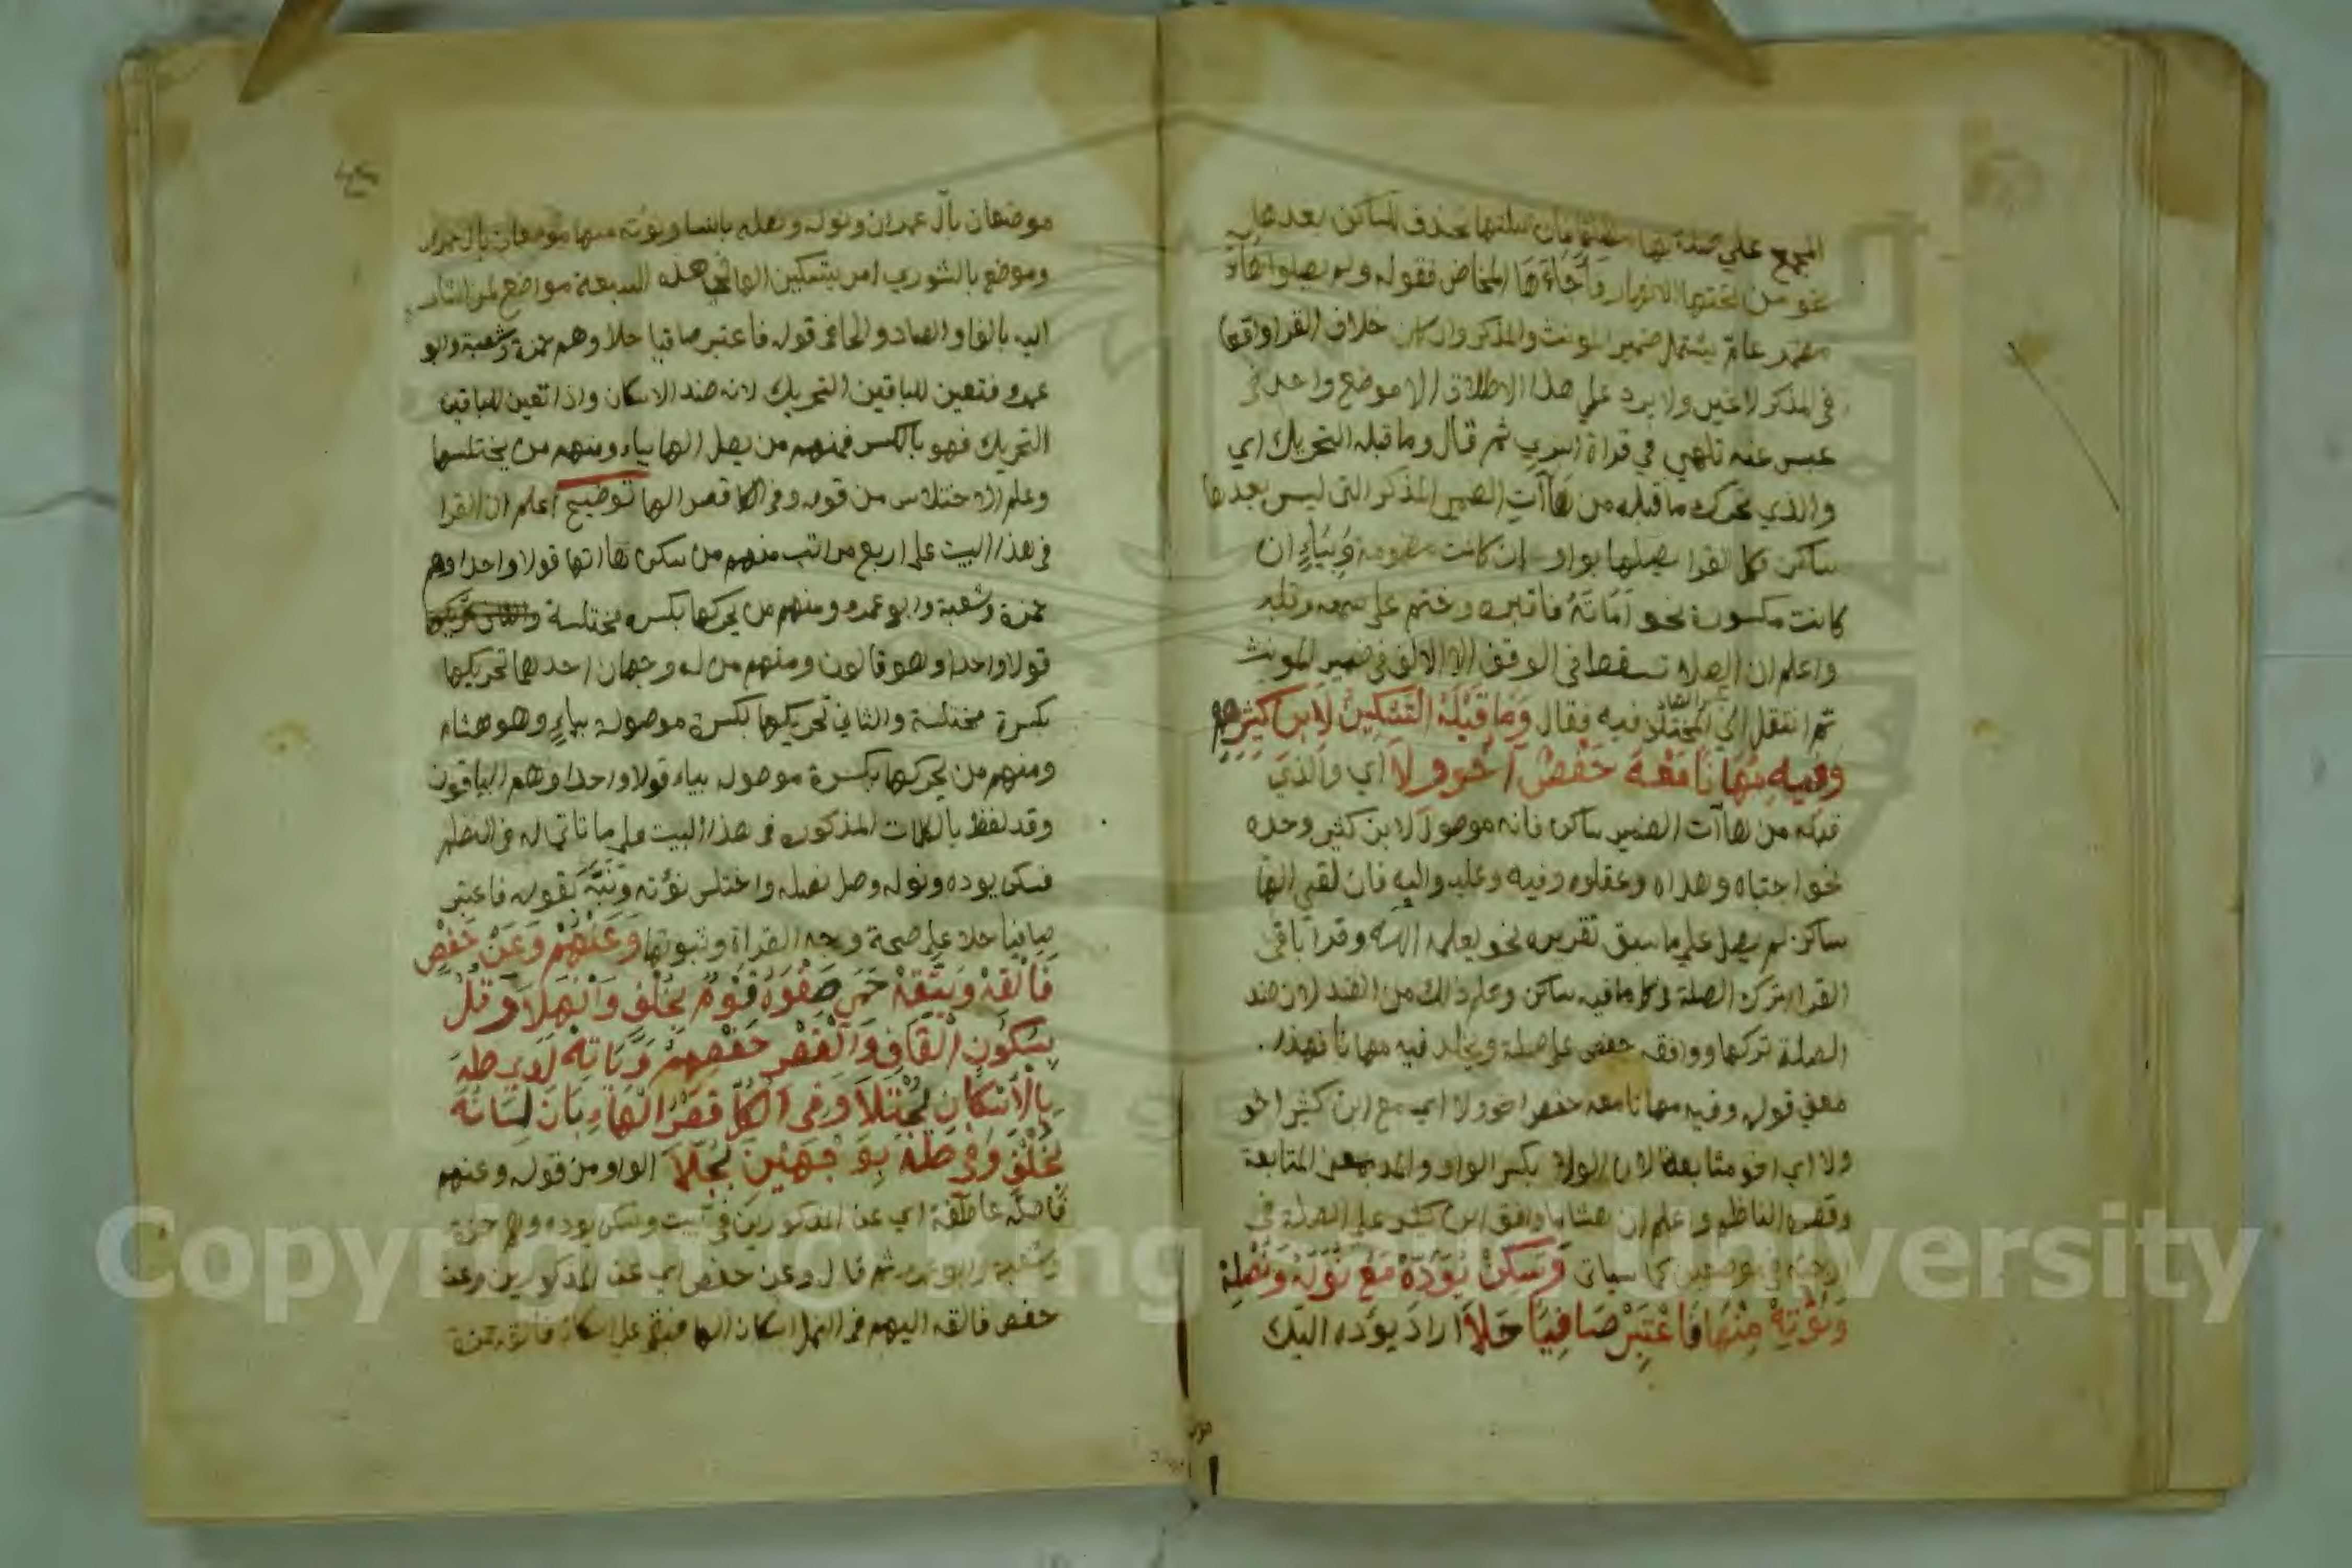 المجمع على صلتها مطلقا فان صلتها تحذف للساكن بعدها
نحو من تحتها الانهار فأجاءها المخاض فقوله ولم يصلوا ها
مضمر عام يشمل ضمير المونث والمذكر وان كان خلاف القرا واقعا
في المذكر لا غير ولا يرد على هذا الاطلاق الا موضع واحد في
عبس عنه تلهي في قراة البزي ثم قال وما قبله التحريك اي
والذي تحرك ما قبله من هاآت الضمير المذكر التي ليس بعدها
ساكن فكل القرا يصلها بواو إن كانت مضمومة وبياءٍ ان
كانت مكسورة نحو أماته فاقبره وختم على سمعه وقلبه
واعلم ان الصلة تسقط في الوقف الا الالف في ضمير المونث
ثم انتقل الي المختلف فيه فقال وَمَا قَبْلَهُ التَّسْكِينُ لِابْنِ كَثِيرِهِمْ
وَفِيهِ مُهَانًا مَعْهُ حَفْصٌ أَخُو وِلَا اي والذي
قبله من هاآت الضمير ساكن فانه موصول لابن كثير وحده
نحو اجتباه وهداه وعقلوه وفيه وعليه واليه فان لقي الها
ساكن لم يصل على ما سبق تقريره نحو يعلمه الله وقرأ باقي
القرا بترك الصلة في كل ما قبله ساكن وعلم ذلك من الضد لان ضد
الصلة تركها ووافقه حفص على صلة ويخلد فيه مهانا فهذا
معنى قوله وفيه مهانا معه حفص اخو ولا اي مع ابن كثير اخو
ولا اي اخو متابعة لان الولاء بكسر الواو والمد بمعنى المتابعة
وقصره الناظم واعلم ان هشاما وافق ابن كثير على الصلة في
ارجئه في موضعين كما سياتي وَسَكِّنْ يُؤَدِّهْ مَعْ نُوَلِّهْ وَنُصْلِهِ
وَنُؤْتِهِ مِنْهَا فَاعْتَبِرْ صَافِيًا حَلَا اراد يؤده اليك
موضعان بآل عمران ونوله ونصله بالنسا ونؤته منها موضعان بآل عمران
وموضع بالشوري امر بتسكين الها في هذه السبعة مواضع لمن اشار
اليه بالفا والصاد والحا في قوله فاعتبر صافيا حلا وهم حمزة وشعبة وابو
عمرو فتعين للباقين التحريك لانه ضد الاسكان واذا تعين للباقين
التحريك فهو بالكسر فمنهم من يصل الها بياء ومنهم من يختلسها
وعلم الاختلاس من قوله وفي الكل قصر الها توضيح اعلم ان القرا
في هذا البيت على اربع مراتب منهم من سكن هاآتها قولا واحدا وهم
حمزة وشعبة وابو عمرو ومنهم من يحركها بكسرة مختلسة
قولا واحدا وهو قالون ومنهم من له وجهان احدهما تحريكها
بكسرة مختلسة والثاني تحريكها بكسرة موصولة بياءٍ وهو هشام
ومنهم من يحركها بكسرة موصولة بياء قولا واحدا وهم الباقون
وقد لفظ بالكلمات المذكورة في هذا البيت على ما تاتي له في النظم
فسكن يوده ونوله وصل نصله واختلس نؤته ونبَّه بقوله فاعتبر
صافيا حلا على صحة وجه القراة وثبوتها وَعَنْهُمْ وَعَنْ حَفْصٍ
فَأَلْقِهْ وَيَتَّقِهْ حَمَى صَفْوَهُ قَوْمٌ بِخُلْفٍ وَأَنْهَلَا وَقُلْ
بِسُكُونِ الْقَافِ وَالْقَصْرِ حَفْصُهُمْ وَيَأْتِهْ لَدَى طه
بِالْإِسْكَانِ يُجْتَلَا وَفِي الْكُلِّ قَصْرُ الْهَاءِ بَانَ لِسَانُهُ
بِخُلْفٍ وَفِي طه بِوَجْهَيْنِ بُجِّلَا الواو من قوله وعنهم
فاصلة عاطفة اي عن المذكورين في بيت وسكن يوده وهم حمزة
وشعبة وابو عمرو ثم قال وعن حفص اي عن المذكورين وعن
حفص فالقه اليهم في النمل اسكان الها